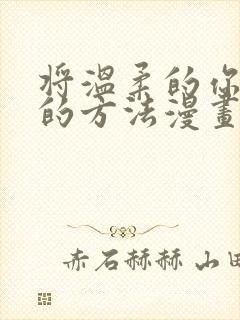 将溫柔的你
的方法漫畫
赤石赫赫 山田